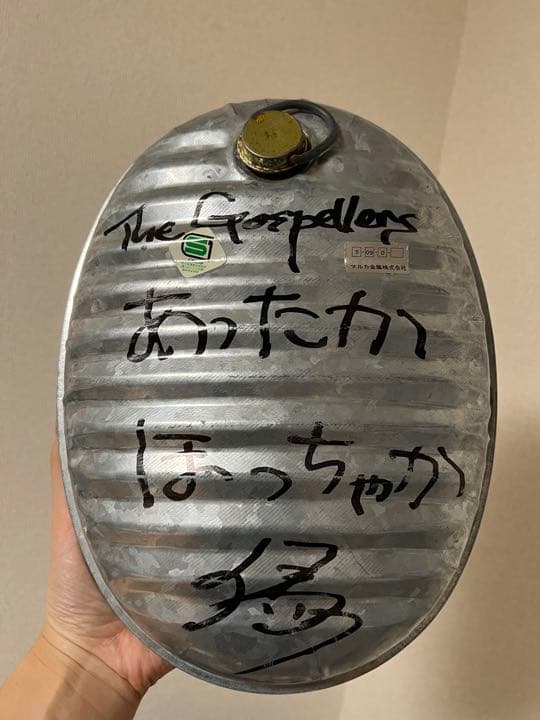 The Gospellers
S-09-0-
マルカ金属株式会社
あったか
ほっちゃか